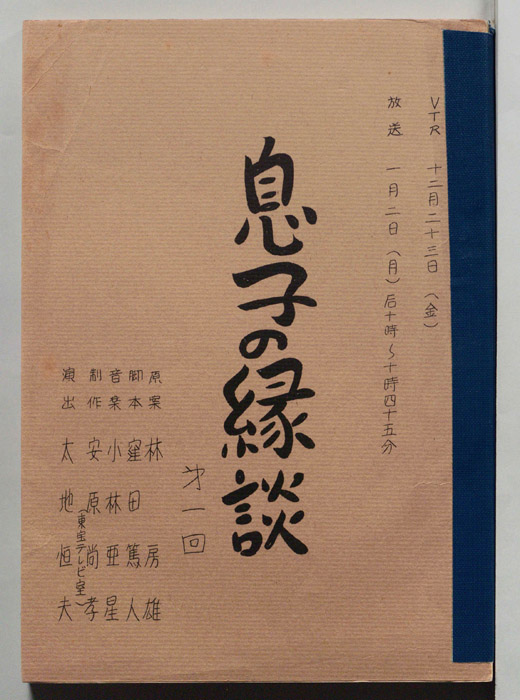 VTR 十二月二十三日（金）
放送 一月二日（月）后十時〜十時四十五分
息子の縁談
才一回
原案 林房雄
脚本 窪田篤人
音楽 小林亜星
制作 安原尚孝
（東宝テレビ室）
演出 太地恒夫